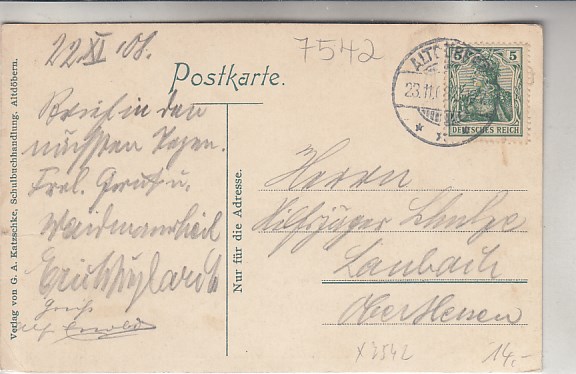 22 XI 08.
7542
Postkarte.
ALTDÖBERN
23.11.0
5 5
DEUTSCHES REICH
Brief in den
nächsten Tagen.
Frdl. Gruß u.
Waidmannsheil
Erich
Gruß
Nur für die Adresse.
Verlag von G. A. Katzschke, Schulbuchhandlung, Altdöbern.
Herrn
Hilfsjäger Schulze
Laubach
Oberhessen
x 7542
14,-